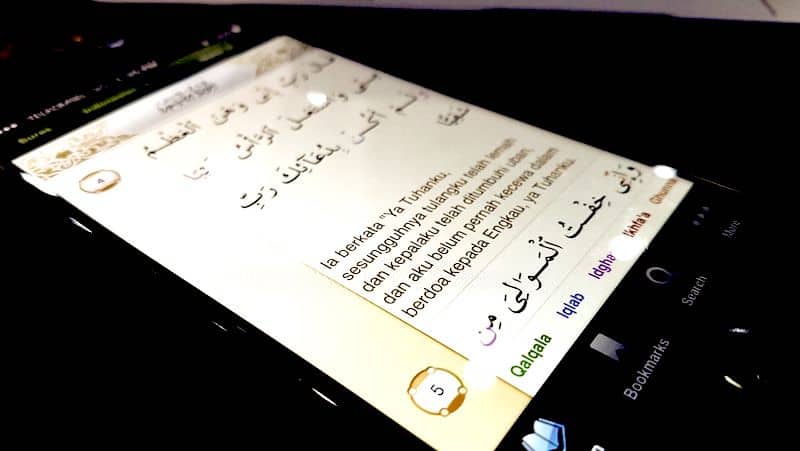 Suras
4
قَالَ رَبِّ إِنِّى وَهَنَ ٱلْعَظْمُ
مِنِّى وَٱشْتَعَلَ ٱلرَّأْسُ شَيْبًا
وَلَمْ أَكُنۢ بِدُعَآئِكَ رَبِّ
شَقِيًّا
Ia berkata "Ya Tuhanku,
sesungguhnya tulangku telah lemah
dan kepalaku telah ditumbuhi uban,
dan aku belum pernah kecewa dalam
berdoa kepada Engkau, ya Tuhanku.
5
وَإِنِّى خِفْتُ ٱلْمَوَٰلِىَ مِن
Qalqala Iqlab Idgha Ikhfa'a
Bookmarks Search More